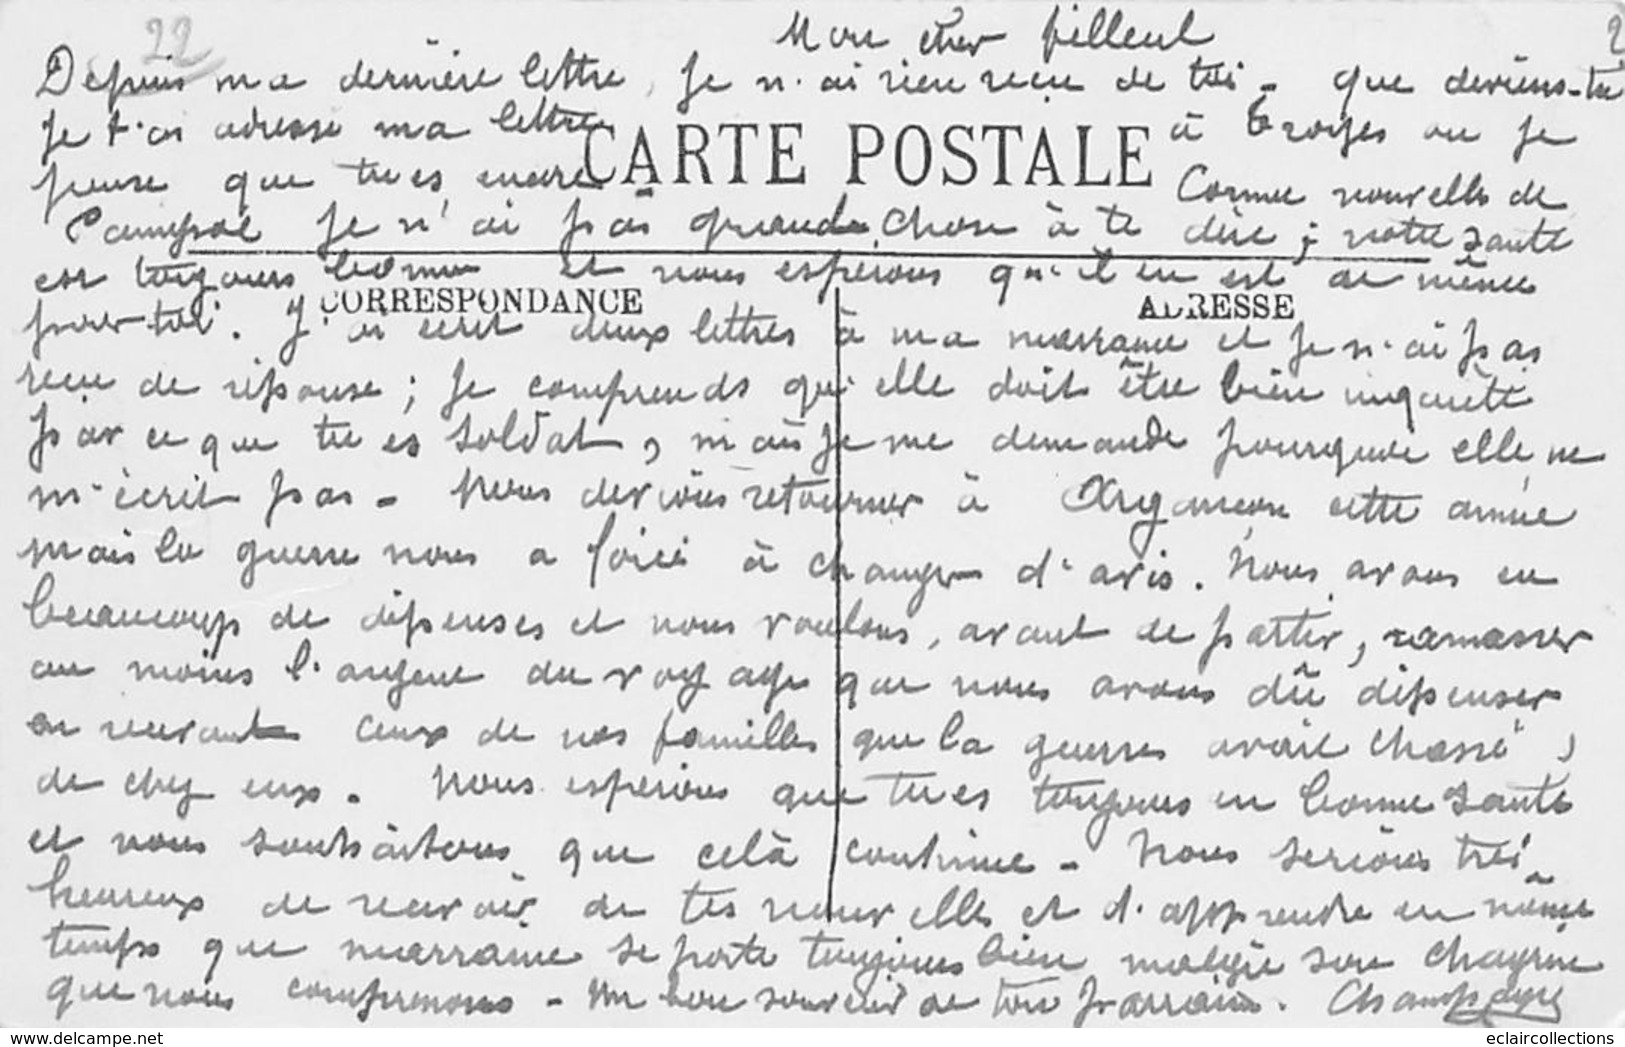 22
2
Mon cher filleul
Depuis ma dernière lettre, je n'ai rien reçu de toi - que deviens-tu
je t'ai adressé ma lettre à Troyes ou je
CARTE POSTALE
pense que tu es encore Comme nouvelles de
je n'ai pas grande chose à te dire ; notre santé
est toujours bonne et nous espérons qu'il en est de même
CORRESPONDANCE ADRESSE
pour toi. J'ai écrit deux lettres à ma marraine et je n'ai pas
reçu de réponse ; je comprends qu'elle doit être bien inquiète
par ce que tu es soldat, mais je me demande pourquoi elle ne
m'écrit pas - Nous devions retourner à Argançon cette année
mais la guerre nous a forcé à changer d'avis. Nous avons eu
beaucoup de dépenses et nous voulons, avant de partir, ramasser
au moins l'argent du voyage que nous avons dû dépenser
en recevant ceux de nos familles que la guerre avait chassé,
de chez eux. Nous espérons que tu es toujours en bonne santé
et nous souhaitons que celà continue - Nous serions très
heureux de recevoir de tes nouvelles et d'apprendre en même
temps que marraine se porte toujours bien malgré son chagrin
que nous comprenons - Un bon souvenir de ton parrain.
eclaircollections